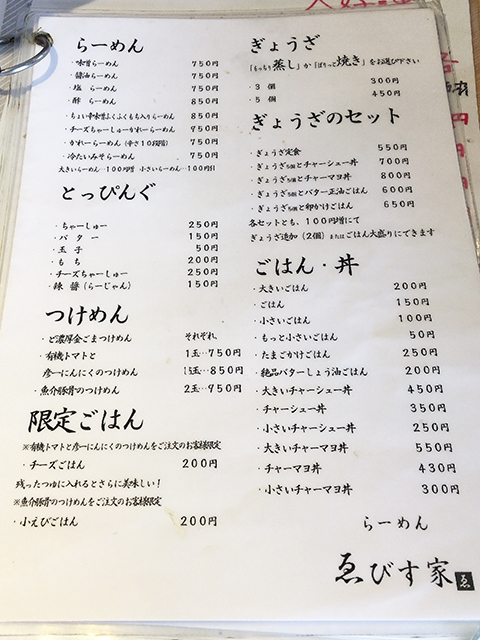 らーめん
・味噌らーめん 750円
・醤油らーめん 750円
・塩 らーめん 750円
・酢 らーめん 850円
・ちょい辛味噌ふくふくもち入りらーめん 850円
・チーズちゃーしゅーかれーらーめん 950円
・かれーらーめん(辛さ10段階) 750円
・冷たいみそらーめん 750円
大きいらーめん…100円増 小さいらーめん…100円引
とっぴんぐ
・ちゃーしゅー 250円
・バター 150円
・玉子 50円
・もち 200円
・チーズちゃーしゅー 250円
・辣醤(らーじゃん) 150円
つけめん
・ど濃厚金ごまつけめん それぞれ、
・有機トマトと 1玉…750円
彦一にんにくのつけめん 1.5玉…850円
・魚介豚骨のつけめん 2玉…950円
限定ごはん
※有機トマトと彦一にんにくのつけめんをご注文のお客様限定
・チーズごはん 200円
残ったつゆに入れるとさらに美味しい!
※魚介豚骨のつけめんをご注文のお客様限定
・小えびごはん 200円
ぎょうざ
「もっちり蒸し」か「ぱりっと焼き」をお選び下さい
・3個 300円
・5個 450円
ぎょうざのセット
・ぎょうざ定食 550円
・ぎょうざ5個とチャーシュー丼 700円
・ぎょうざ5個とチャーマヨ丼 800円
・ぎょうざ5個とバター正油ごはん 600円
・ぎょうざ5個と卵かけごはん 650円
各セットとも、100円増にて
ぎょうざ追加(2個)またはごはん大盛りにできます
ごはん・丼
・大きいごはん 200円
・ごはん 150円
・小さいごはん 100円
・もっと小さいごはん 50円
・たまごかけごはん 250円
・絶品バターしょう油ごはん 200円
・大きいチャーシュー丼 450円
・チャーシュー丼 350円
・小さいチャーシュー丼 250円
・大きいチャーマヨ丼 550円
・チャーマヨ丼 430円
・小さいチャーマヨ丼 300円
らーめん
ゑびす家 ゑ